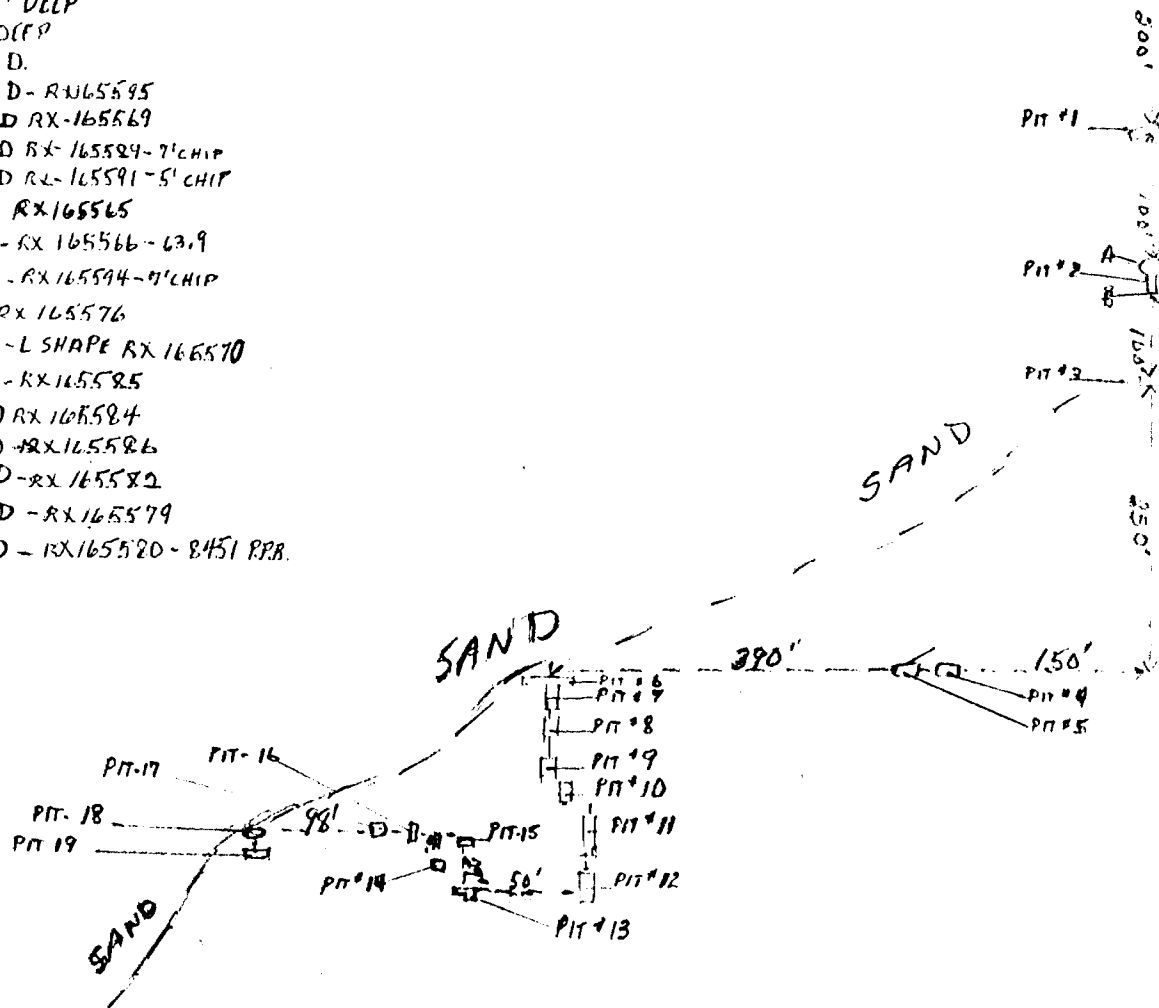 DEEP
DEEP
D.
D - RX165595
D RX-165569
D RX-165589-7' CHIP
D RX-165591-5' CHIP
RX165565
- RX 165566-63.9
- RX165594-7' CHIP
RX 165576
- L SHAPE RX 165570
- RX165585
D RX 165584
D -RX165586
D -RX 165582
D - RX165579
D - RX165580-8451 P.P.B.
500'
PIT #1
100'
A
PIT #2
B
PIT #3
SAND
250'
SAND
390'
150'
PIT #6
PIT #7
PIT #4
PIT #5
PIT #8
PIT-16
PIT-17
PIT #9
PIT #10
PIT-18
98'
PIT #11
PIT-15
PIT 19
PIT #14
50'
PIT #12
PIT #13
SAND